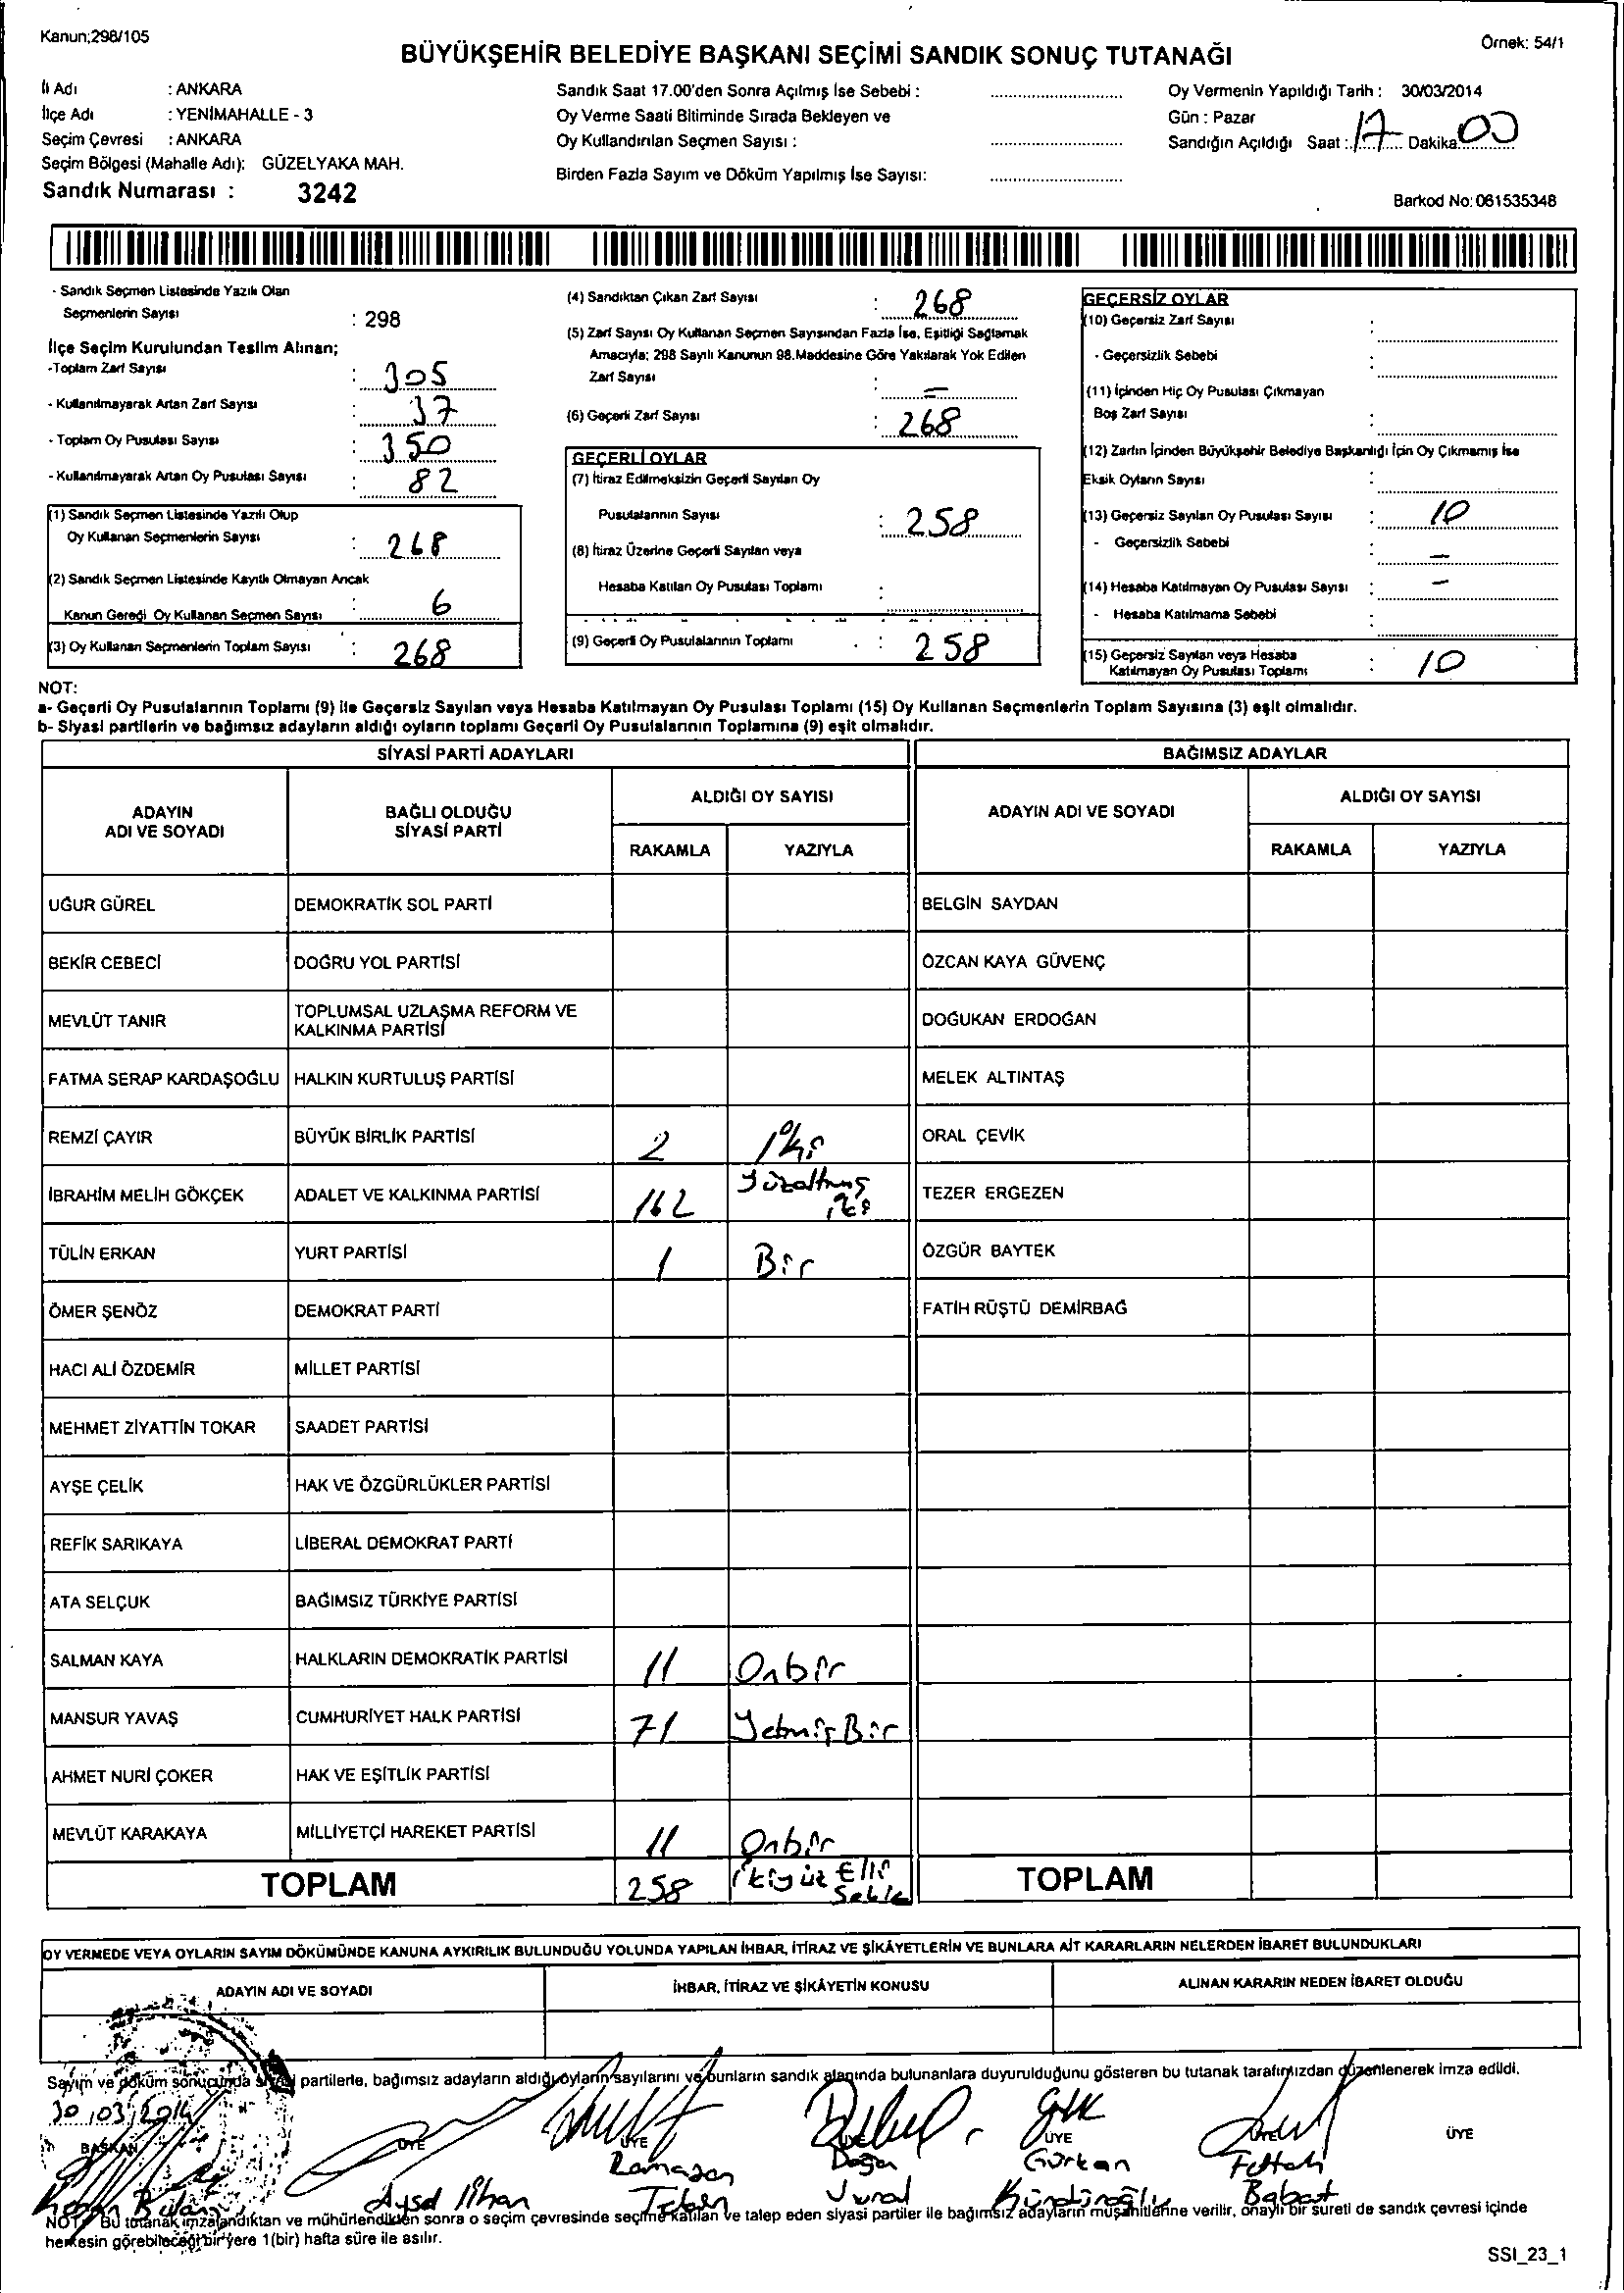 Kanun;298/105
Örnek: 54/1
BÜYÜKŞEHİR BELEDİYE BAŞKANI SEÇİMİ SANDIK SONUÇ TUTANAĞI
İli Adı : ANKARA
İlçe Adı : YENİMAHALLE - 3
Seçim Çevresi : ANKARA
Seçim Bölgesi (Mahalle Adı): GÜZELYAKA MAH.
Sandık Numarası : 3242
Sandık Saat 17.00'den Sonra Açılmış İse Sebebi :
Oy Verme Saati Bitiminde Sırada Bekleyen ve
Oy Kullandırılan Seçmen Sayısı :
Birden Fazla Sayım ve Döküm Yapılmış İse Sayısı:
Oy Vermenin Yapıldığı Tarih : 30/03/2014
Gün : Pazar
Sandığın Açıldığı Saat : 17 Dakika 00
Barkod No: 061535348
- Sandık Seçmen Listesinde Yazılı Olan
Seçmenlerin Sayısı : 298
İlçe Seçim Kurulundan Teslim Alınan;
-Toplam Zarf Sayısı : 305
- Kullanılmayarak Artan Zarf Sayısı : 37
- Toplam Oy Pusulası Sayısı : 350
- Kullanılmayarak Artan Oy Pusulası Sayısı : 82
(1) Sandık Seçmen Listesinde Yazılı Olup
Oy Kullanan Seçmenlerin Sayısı : 268
(2) Sandık Seçmen Listesinde Kayıtlı Olmayan Ancak
Kanun Gereği Oy Kullanan Seçmen Sayısı : 6
(3) Oy Kullanan Seçmenlerin Toplam Sayısı : 268
(4) Sandıktan Çıkan Zarf Sayısı : 268
(5) Zarf Sayısı Oy Kullanan Seçmen Sayısından Fazla İse, Eşitliği Sağlamak
Amacıyla; 298 Sayılı Kanunun 98.Maddesine Göre Yakılarak Yok Edilen
Zarf Sayısı : =
(6) Geçerli Zarf Sayısı : 268
GEÇERLİ OYLAR
(7) İtiraz Edilmeksizin Geçerli Sayılan Oy
Pusulalarının Sayısı : 258
(8) İtiraz Üzerine Geçerli Sayılan veya
Hesaba Katılan Oy Pusulası Toplamı :
(9) Geçerli Oy Pusulalarının Toplamı : 258
GEÇERSİZ OYLAR
(10) Geçersiz Zarf Sayısı :
- Geçersizlik Sebebi :
(11) İçinden Hiç Oy Pusulası Çıkmayan
Boş Zarf Sayısı :
(12) Zarfın İçinden Büyükşehir Belediye Başkanlığı İçin Oy Çıkmamış İse
Eksik Oyların Sayısı :
(13) Geçersiz Sayılan Oy Pusulası Sayısı : 10
- Geçersizlik Sebebi : =
(14) Hesaba Katılmayan Oy Pusulası Sayısı : -
- Hesaba Katılmama Sebebi :
(15) Geçersiz Sayılan veya Hesaba
Katılmayan Oy Pusulası Toplamı : 10
NOT:
a- Geçerli Oy Pusulalarının Toplamı (9) ile Geçersiz Sayılan veya Hesaba Katılmayan Oy Pusulası Toplamı (15) Oy Kullanan Seçmenlerin Toplam Sayısına (3) eşit olmalıdır.
b- Siyasi partilerin ve bağımsız adayların aldığı oyların toplamı Geçerli Oy Pusulalarının Toplamına (9) eşit olmalıdır.
SİYASİ PARTİ ADAYLARI
BAĞIMSIZ ADAYLAR
ADAYIN ADI VE SOYADI
BAĞLI OLDUĞU SİYASİ PARTİ
ALDIĞI OY SAYISI
RAKAMLA YAZIYLA
ADAYIN ADI VE SOYADI
ALDIĞI OY SAYISI
RAKAMLA YAZIYLA
UĞUR GÜREL DEMOKRATİK SOL PARTİ BELGİN SAYDAN
BEKİR CEBECİ DOĞRU YOL PARTİSİ ÖZCAN KAYA GÜVENÇ
MEVLÜT TANIR TOPLUMSAL UZLAŞMA REFORM VE KALKINMA PARTİSİ DOĞUKAN ERDOĞAN
FATMA SERAP KARDAŞOĞLU HALKIN KURTULUŞ PARTİSİ MELEK ALTINTAŞ
REMZİ ÇAYIR BÜYÜK BİRLİK PARTİSİ 2 iki ORAL ÇEVİK
İBRAHİM MELİH GÖKÇEK ADALET VE KALKINMA PARTİSİ 162 Yüzaltmış iki TEZER ERGEZEN
TÜLİN ERKAN YURT PARTİSİ 1 Bir ÖZGÜR BAYTEK
ÖMER ŞENÖZ DEMOKRAT PARTİ FATİH RÜŞTÜ DEMİRBAĞ
HACI ALİ ÖZDEMİR MİLLET PARTİSİ
MEHMET ZİYATTİN TOKAR SAADET PARTİSİ
AYŞE ÇELİK HAK VE ÖZGÜRLÜKLER PARTİSİ
REFİK SARIKAYA LİBERAL DEMOKRAT PARTİ
ATA SELÇUK BAĞIMSIZ TÜRKİYE PARTİSİ
SALMAN KAYA HALKLARIN DEMOKRATİK PARTİSİ 11 Onbir
MANSUR YAVAŞ CUMHURİYET HALK PARTİSİ 71 Yetmiş Bir
AHMET NURİ ÇOKER HAK VE EŞİTLİK PARTİSİ
MEVLÜT KARAKAYA MİLLİYETÇİ HAREKET PARTİSİ 11 Onbir
TOPLAM 258 ikiyüz Elli Sekiz TOPLAM
OY VERMEDE VEYA OYLARIN SAYIM DÖKÜMÜNDE KANUNA AYKIRILIK BULUNDUĞU YOLUNDA YAPILAN İHBAR, İTİRAZ VE ŞİKÂYETLERİN VE BUNLARA AİT KARARLARIN NELERDEN İBARET BULUNDUKLARI
ADAYIN ADI VE SOYADI İHBAR, İTİRAZ VE ŞİKÂYETİN KONUSU ALINAN KARARIN NEDEN İBARET OLDUĞU
Sayım ve döküm sonucunda siyasi partilerle, bağımsız adayların aldığı oyların sayılarını ve bunların sandık alanında bulunanlara duyurulduğunu gösteren bu tutanak tarafımızdan düzenlenerek imza edildi.
30/03/2014
BAŞKAN ÜYE ÜYE ÜYE ÜYE ÜYE ÜYE
Aysel İlhan
Ramazan
Doğan Vural
Gürkan Kündüroğlu
Fettah Babat
NOT: Bu tutanak imzalandıktan ve mühürlendikten sonra o seçim çevresinde seçime katılan ve talep eden siyasi partiler ile bağımsız adayların müşahitlerine verilir, onaylı bir sureti de sandık çevresi içinde
herkesin görebileceği bir yere 1(bir) hafta süre ile asılır.
SSI_23_1